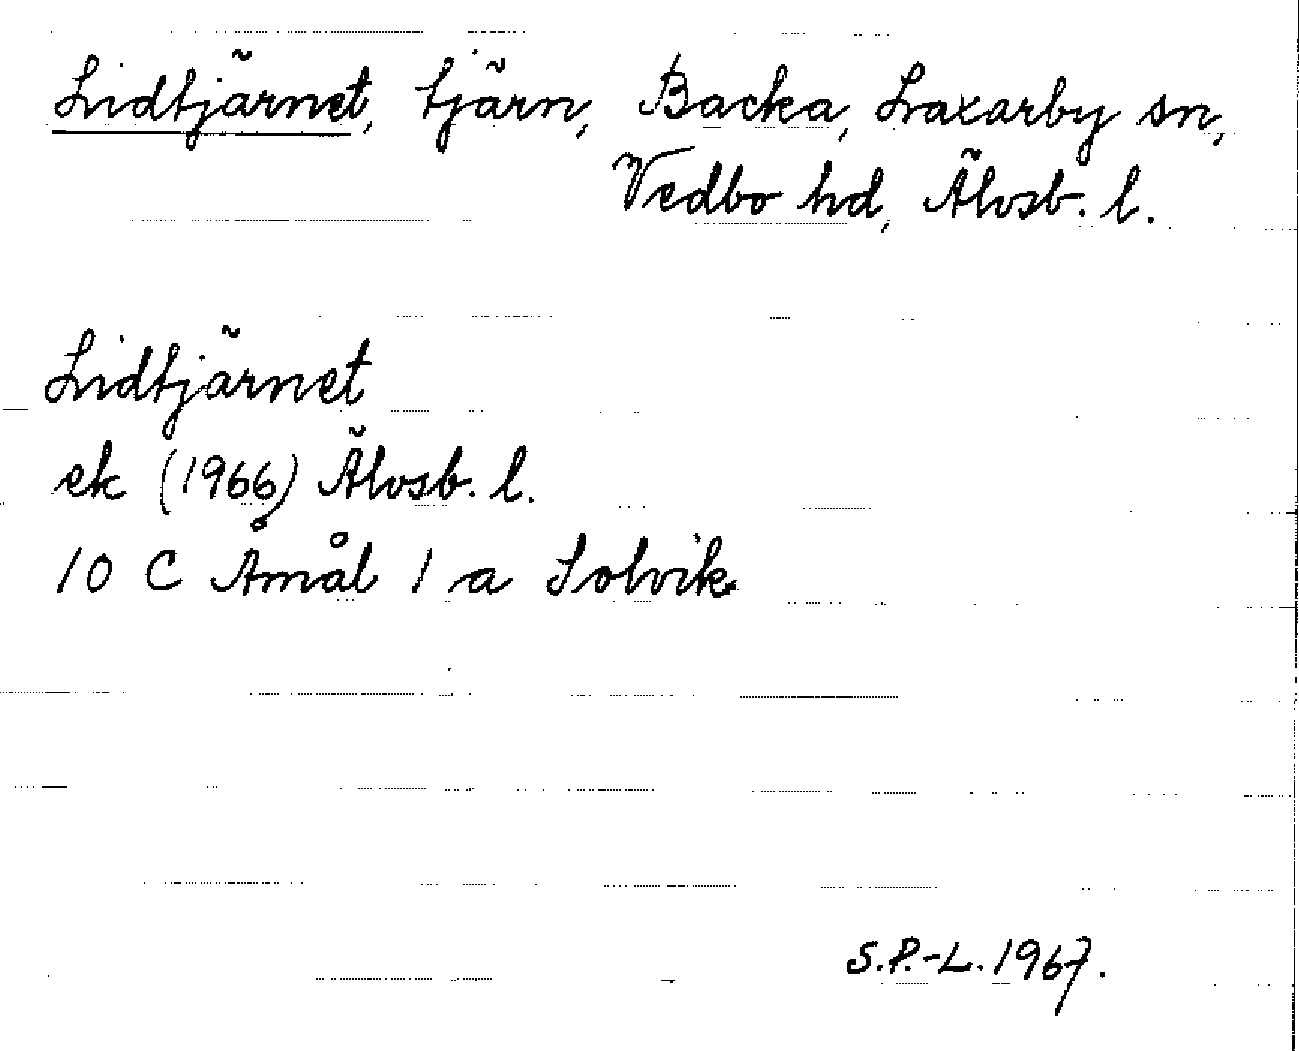 Lidtjärnet, tjärn, Backa, Laxarby sn,
Vedbo hd, Älvsb. l.
Lidtjärnet
ek (1966) Älvsb. l.
10 C Åmål 1 a Solvik
S.P.-L. 1967.